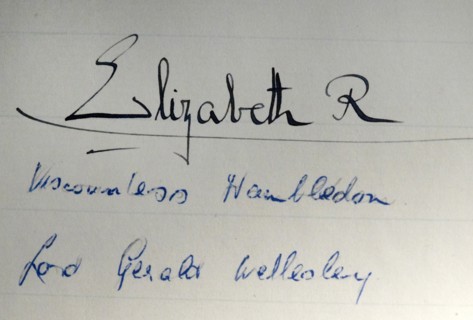 Elizabeth R
Viscountess Hambleden
Lord Gerald Wellesley